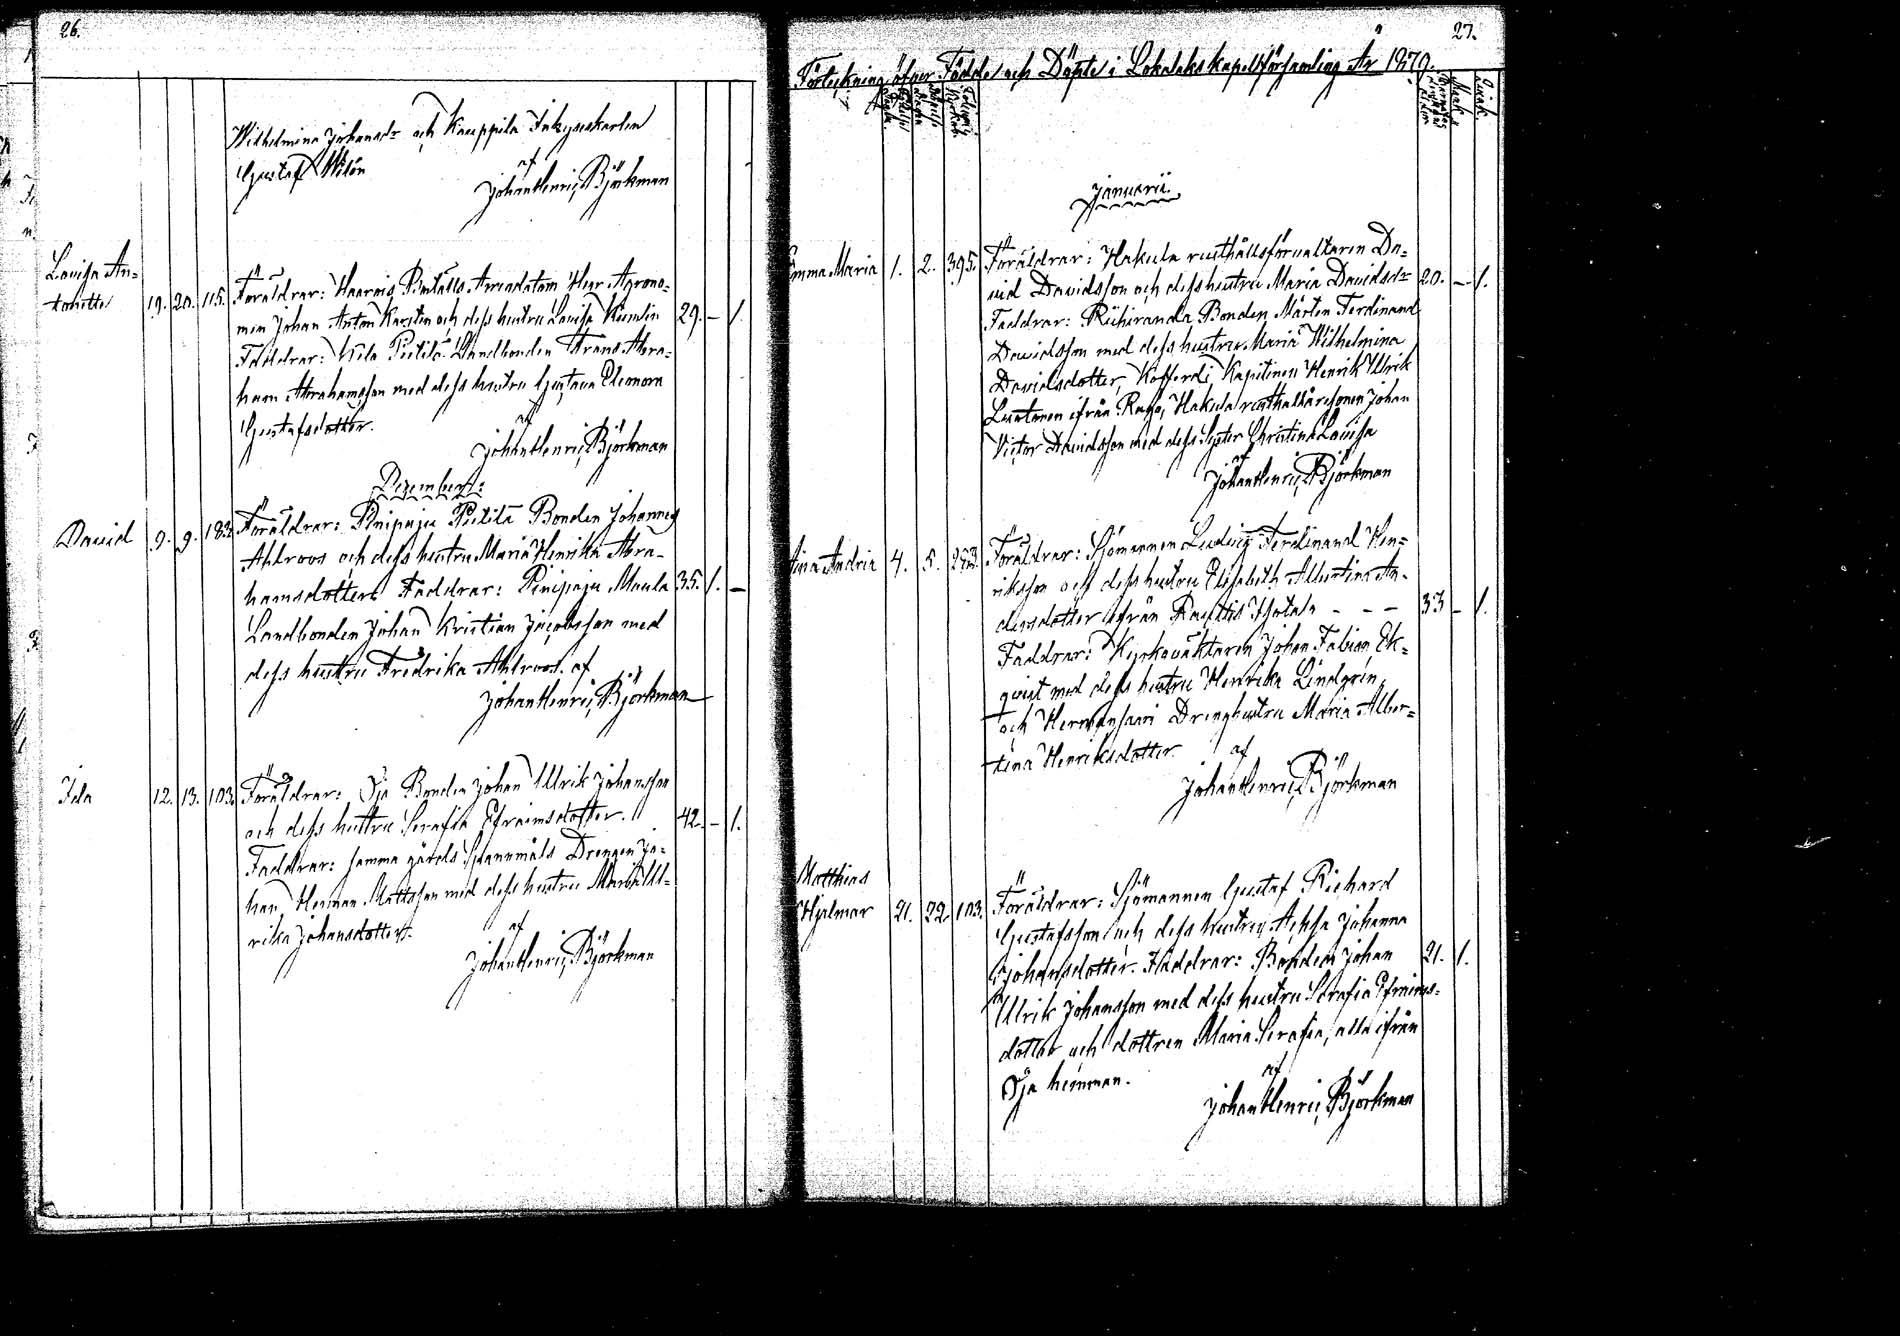 26.
Wilhelmina Johansdr och Kauppila Inhyseskarlen
Gustaf Wilén
af
Johan Henric Björkman
Lovisa An=
tonette 19. 20. 115.
Föräldrar: Haarvio Buställs Arrendatorn Herr Agrono=
men Johan Anton Karsten och dess hustru Lovisa Kumlin 29. — 1.
Faddrar: Kila Pietilä Landbonden Frans Abra=
ham Abrahamsson med dess hustru Gustava Eleonora
Gustafsdotter.
af
Johan Henric Björkman
Dezember:
David 9. 9. 183.
Föräldrar: Pinipaju Pietilä Bonden Johannes
Ahlroos och dess hustru Maria Henrika Abra-
hamsdotter Faddrar: Pinipaju Maula 35. 1. —
Landbonden Johan Kristian Jacobsson med
dess hustru Fredrika Ahlroos. af
Johan Henric Björkman
Ida 12. 13. 103.
Föräldrar: Öja Bonden Johan Ulrik Johansson
och dess hustru Serafia Efraimsdotter. 42. — 1.
Faddrar: samma gårds Spannmåls Drengen Jo=
han Herman Mattsson med dess hustru Maria Ul=
rika Johansdotter.
af
Johan Henric Björkman
27.
Förteckning öfver Födde och Döpte i Lokalaks kapellförsamling År 1879.
Januarii
Emma Maria 1. 2. 395.
Föräldrar: Hakula rusthållsförvaltaren Da=
vid Davidsson och dess hustru Maria Davidsdr 20. — 1.
Faddrar: Riihiranda Bonden Mårten Ferdinand
Davidsson med dess hustru Maria Wilhelmina
Davidsdotter, Kofferdi Kapitenen Henrik Ulrik
Luotonen ifrån Rago, Hakula Johan
Victor Davidsson med dess Syster Christina Lovisa
af
Johan Henric Björkman
Aina Andria 4. 5. 253.
Föräldrar: Sjömannen Ludvig Ferdinand Hen=
riksson och dess hustru Elisabeth Albertina An-
dersdotter ifrån Rautis — — — 33 — 1.
Faddrar: Kyrkovaktaren Johan Fabian Ek=
qvist med dess hustru Henrika Lindgrén
och Hermansaari Drenghustru Maria Alber=
tina Henriksdotter. af
Johan Henric Björkman
Matthias
Hjalmar 21. 22. 103.
Föräldrar: Sjömannen Gustaf Richard
Gustafsson och dess hustru Johanna
Johansdotter. Faddrar: Bonden Johan 21. 1.
Ulrik Johansson med dess hustru Serafia Efraims=
dotter och dottren Maria Serafia, alla ifrån
Öja hemman.
af
Johan Henric Björkman